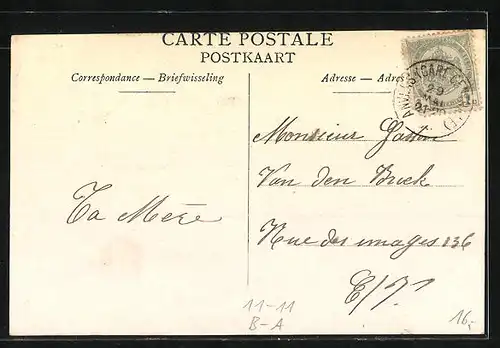 CARTE POSTALE
POSTKAART
Correspondance — Briefwisseling
Adresse — Adres
ANVERS (GARE CENTRALE)
29
21-
Monsieur Gaston
Van den Buck
Rue des images 136
E/V.
Ta Mère
11-11
B-A
16,-